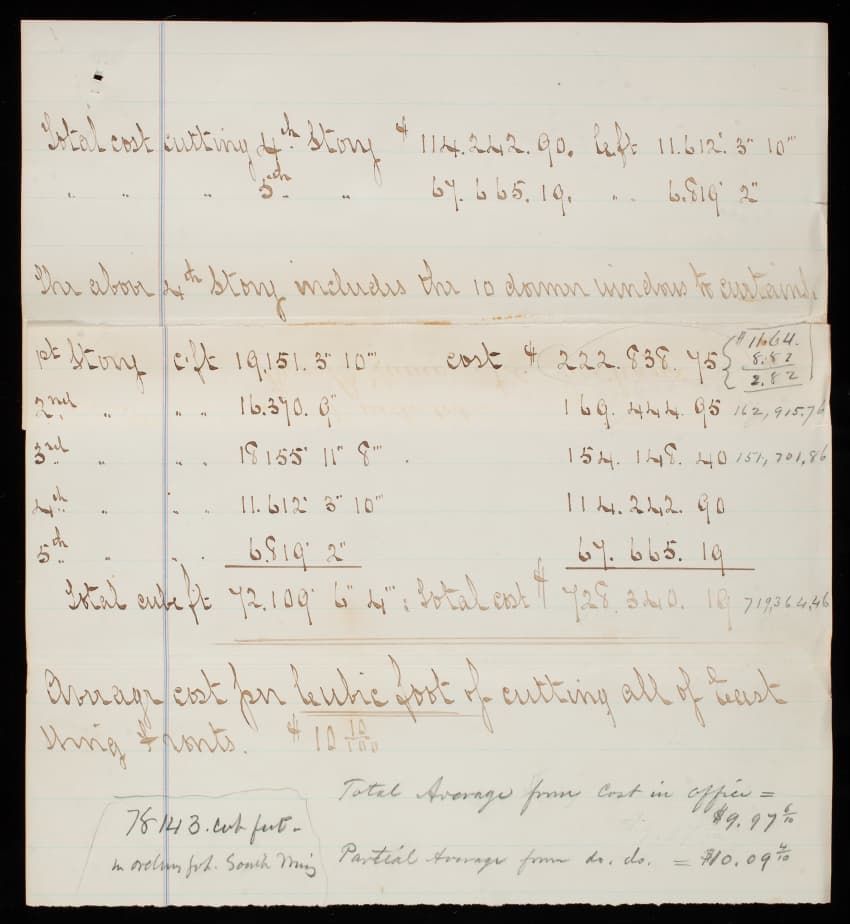 Total cost cutting 4th Story $ 114.242.90. c.ft 11.612' 3" 10'''
" " " 5th " 67.665.19. " " 6.819' 2"
The above 4th Story includes the 10 dormer windows to curtains.
1st Story c.ft 19.151. 3" 10''' cost $ 222.838.75 { $ 11.64.
8.82
2.82 }
2nd " " " 16.370. 9" 169.444.95 162,915.76
3rd " " " 18155' 11" 8''' . 154.148.40 151,701,86
4th " " " 11.612' 3" 10''' 114.242.90
5th " " " 6.819' 2" 67.665.19
Total cube ft 72.109' 6" 4''' : Total cost $ 728.340.19 719,364.46
Average cost per Cubic foot of cutting all of East
Wing Fronts. $ 10 10/100
Total Average from Cost in office =
$9.97 6/10
78143. cub feet.
South Wing
Partial Average from do. do. = $10.09 4/10